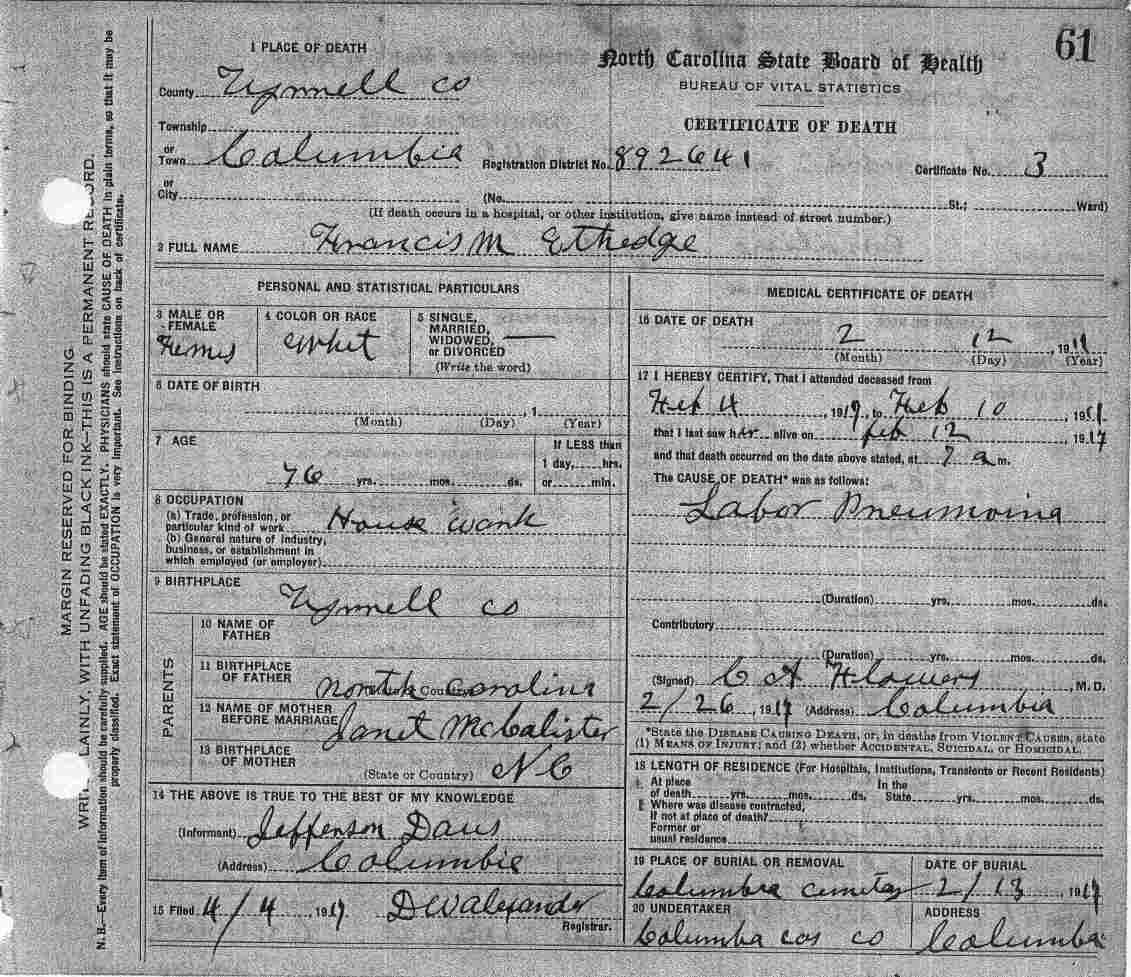 61
North Carolina State Board of Health
BUREAU OF VITAL STATISTICS
CERTIFICATE OF DEATH
1 PLACE OF DEATH
County Tyrrell co
Township
or
Town Columbia Registration District No. 892641 Certificate No. 3
or
City (No. St.; Ward)
(If death occurs in a hospital, or other institution, give name instead of street number.)
2 FULL NAME Francis M Ethedge
PERSONAL AND STATISTICAL PARTICULARS
3 MALE OR
FEMALE
4 COLOR OR RACE
Whit
5 SINGLE,
MARRIED,
WIDOWED,
or DIVORCED
(Write the word)
6 DATE OF BIRTH
, 1
(Month) (Day) (Year)
7 AGE
76 yrs. mos. ds.
If LESS than
1 day, hrs.
or min.
8 OCCUPATION
(a) Trade, profession, or
particular kind of work House wank
(b) General nature of industry,
business, or establishment in
which employed (or employer)
9 BIRTHPLACE
Tyrrell co
PARENTS
10 NAME OF
FATHER
11 BIRTHPLACE
OF FATHER
North Carolina
12 NAME OF MOTHER
BEFORE MARRIAGE Janet McCalister
13 BIRTHPLACE
OF MOTHER
(State or Country) NC
14 THE ABOVE IS TRUE TO THE BEST OF MY KNOWLEDGE
(Informant) Jefferson Davis
(Address) Columbia
15 Filed 4/4, 1917 DW Alexander
Registrar.
MEDICAL CERTIFICATE OF DEATH
16 DATE OF DEATH
2 12, 19
(Month) (Day) (Year)
17 I HEREBY CERTIFY, That I attended deceased from
Feb 4, 1917, to Feb 10, 19
that I last saw her alive on feb 12, 1917
and that death occurred on the date above stated, at 7 a m.
The CAUSE OF DEATH* was as follows:
Labor Pneumoina
(Duration) yrs. mos. ds.
Contributory
(Duration) yrs. mos. ds.
(Signed) C A Flowers, M. D.
2/26, 1917 (Address) Columbia
*State the DISEASE CAUSING DEATH, or, in deaths from VIOLENT CAUSES, state
(1) MEANS OF INJURY; and (2) whether ACCIDENTAL, SUICIDAL, or HOMICIDAL.
18 LENGTH OF RESIDENCE (For Hospitals, Institutions, Transients or Recent Residents)
At place In the
of death yrs. mos. ds. State yrs. mos. ds.
Where was disease contracted,
If not at place of death?
Former or
usual residence
19 PLACE OF BURIAL OR REMOVAL
Columbia cemetery
DATE OF BURIAL
2/13 1917
20 UNDERTAKER
Columba cos co
ADDRESS
Columbia
MARGIN RESERVED FOR BINDING
LAINLY, WITH UNFADING BLACK INK—THIS IS A PERMANENT RECORD.
N. B.—Every item of information should be carefully supplied. AGE should be stated EXACTLY. PHYSICIANS should state CAUSE OF DEATH in plain terms, so that it may be
properly classified. Exact statement of OCCUPATION is very important. See instructions on back of certificate.